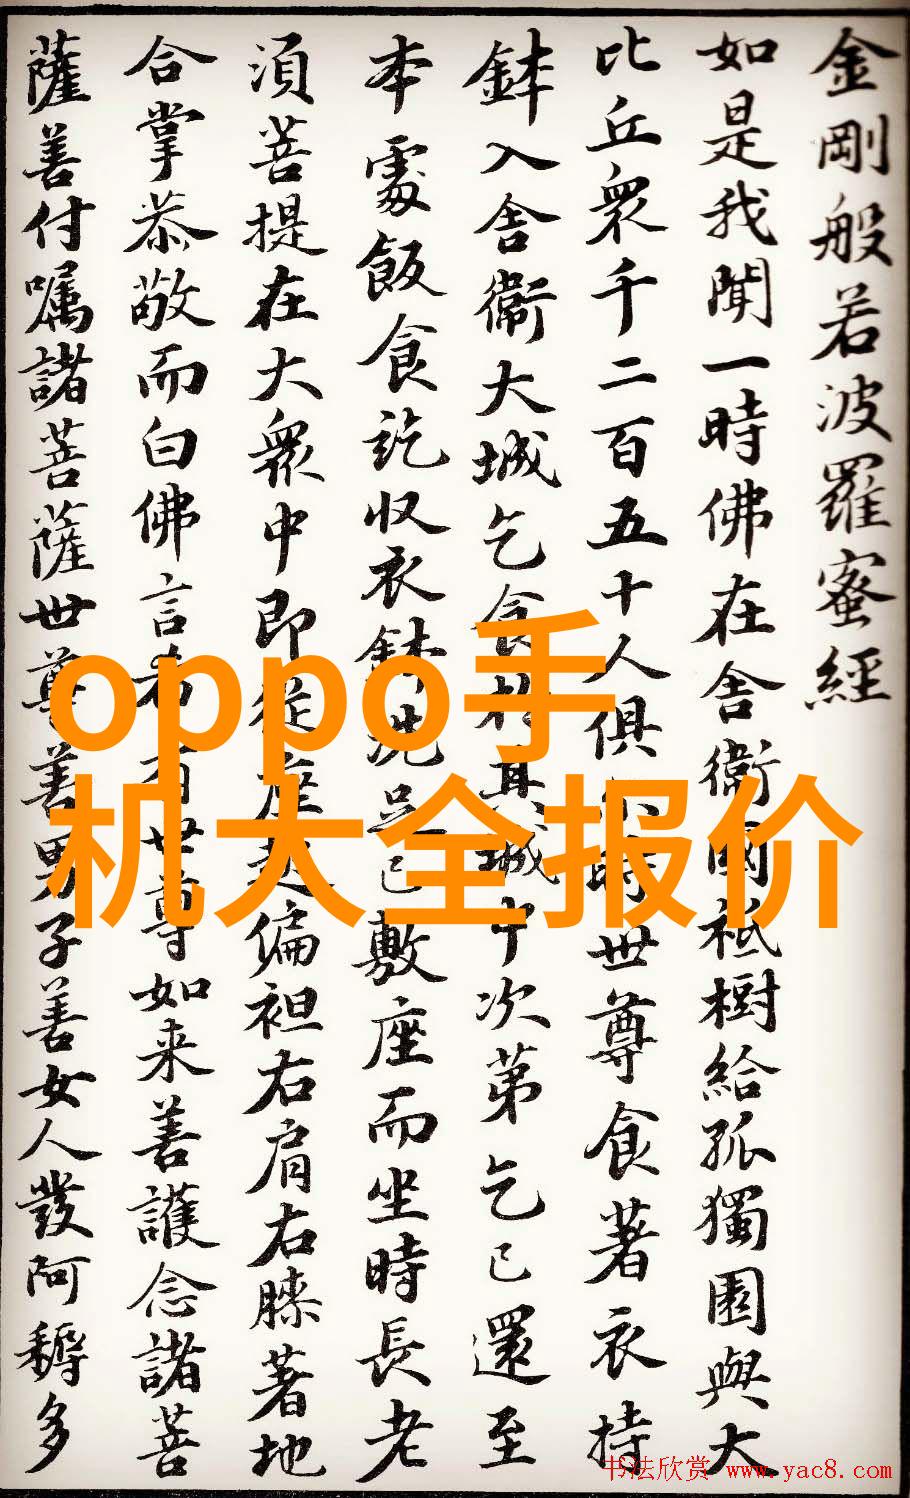 金剛般若波羅蜜經
如是我聞一時佛在舍衞國祇樹給孤獨園與大
比丘衆千二百五十人俱時世尊食著衣持
鉢入舍衞大城乞食於其城中次第乞已還至
本處飯食訖收衣鉢洗足已敷座而坐時長老
須菩提在大衆中即從座起偏袒右肩右膝著地
合掌恭敬而白佛言希有世尊如来善護念諸菩
薩善付囑諸菩薩世尊善男子善女人發阿耨多
oppo手
机大全报价
书法欣赏 www.yac8.com